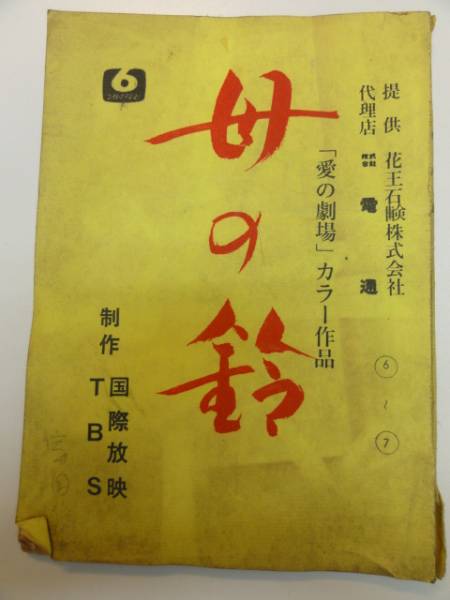 提供 花王石鹸株式会社
代理店 株式会社 電通
「愛の劇場」カラー作品
母の鈴
6
制作 国際放映
TBS
⑥
〜
⑦